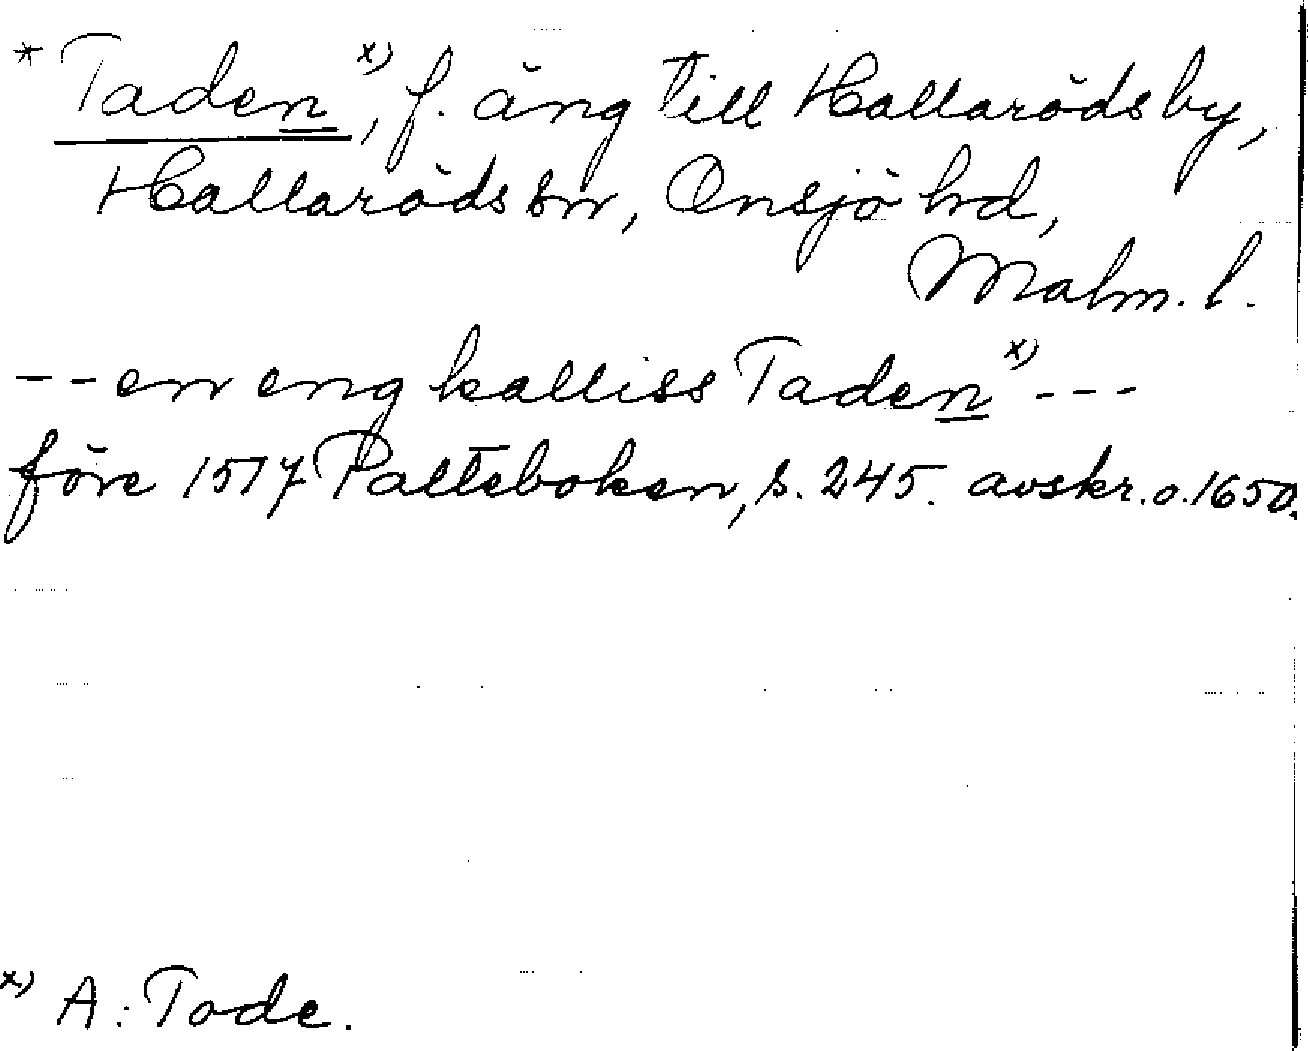 * Taden x), f. äng till Hallaröds by,
Hallaröds sn, Onsjö hd,
Malm. l.
-- en eng kalliss Taden x) ---
före 1517 Palteboken, s. 245. avskr. o. 1650.
x) A: Tode.